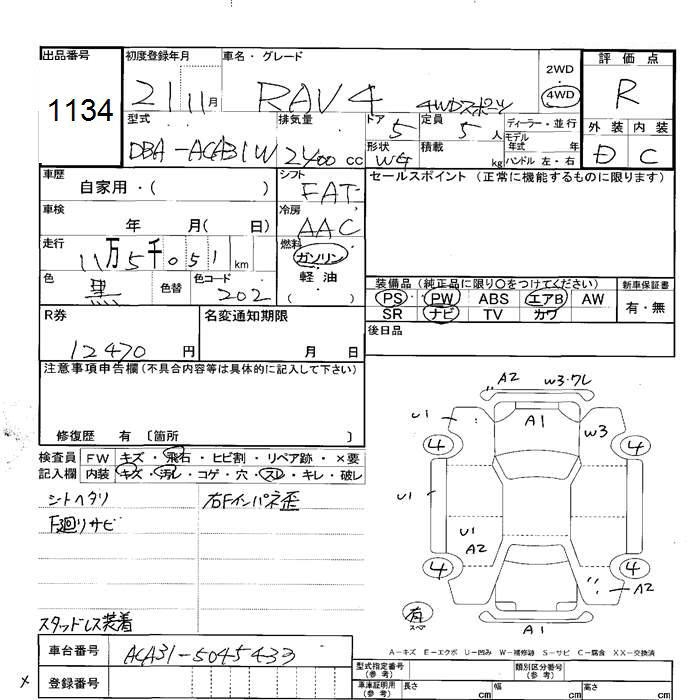 出品番号
1134
初度登録年月
21 11月
車名・グレード
RAV4 4WDスポーツ
2WD
4WD
評価点
R
外装 内装
D C
型式
DBA-ACA31W
排気量
2400 cc
ドア
5
定員
5 人
ディーラー・並行
モデル
年式 年
ハンドル 左・右
形状
W4
積載
kg
車歴
自家用・( )
シフト
FAT
セールスポイント (正常に機能するものに限ります)
車検
年 月( 日)
冷房
AAC
走行
11万5千051 km
燃料
ガソリン
軽油
( )
色
黒
色替
色コード
202
装備品 (純正品に限り○をつけてください)
PS・PW ABS エアB AW
SR ナビ TV カワ
新車保証書
有・無
R券
12470 円
名変通知期限
月 日
後日品
注意事項申告欄 (不具合内容等は具体的に記入して下さい)
修復歴 有 〔箇所 〕
検査員
記入欄
FW キズ・飛石・ヒビ割・リペア跡・×要
内装 キズ・汚レ・コゲ・穴・スレ・キレ・破レ
シートヘタリ
下廻りサビ
右Fインパネ歪
スタッドレス装着
A2
W3・フレ
U1
A1
W3
4
4
U1
U1
A2
4
4
A2
有
スペア
A1
A-キズ E-エクボ U-凹み W-補修跡 S-サビ C-腐食 XX-交換済
車台番号
ACA31-5045433
登録番号
型式指定番号
(参考)
類別区分番号
(参考)
車庫証明用
(参考)
長さ cm
幅 cm
高さ cm